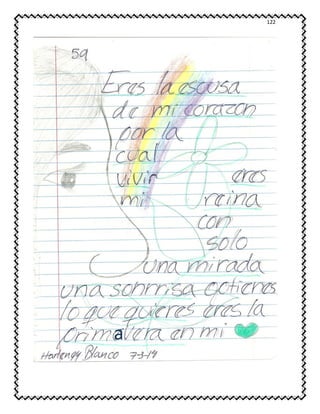 122
59
Eres la escusa
de mi corazon
por la
cual
vivir eres
mi reina
con
solo
una mirada
una sonrrisa optienes
lo que quieres eres la
primavera en mi
Blanco 7-3-14